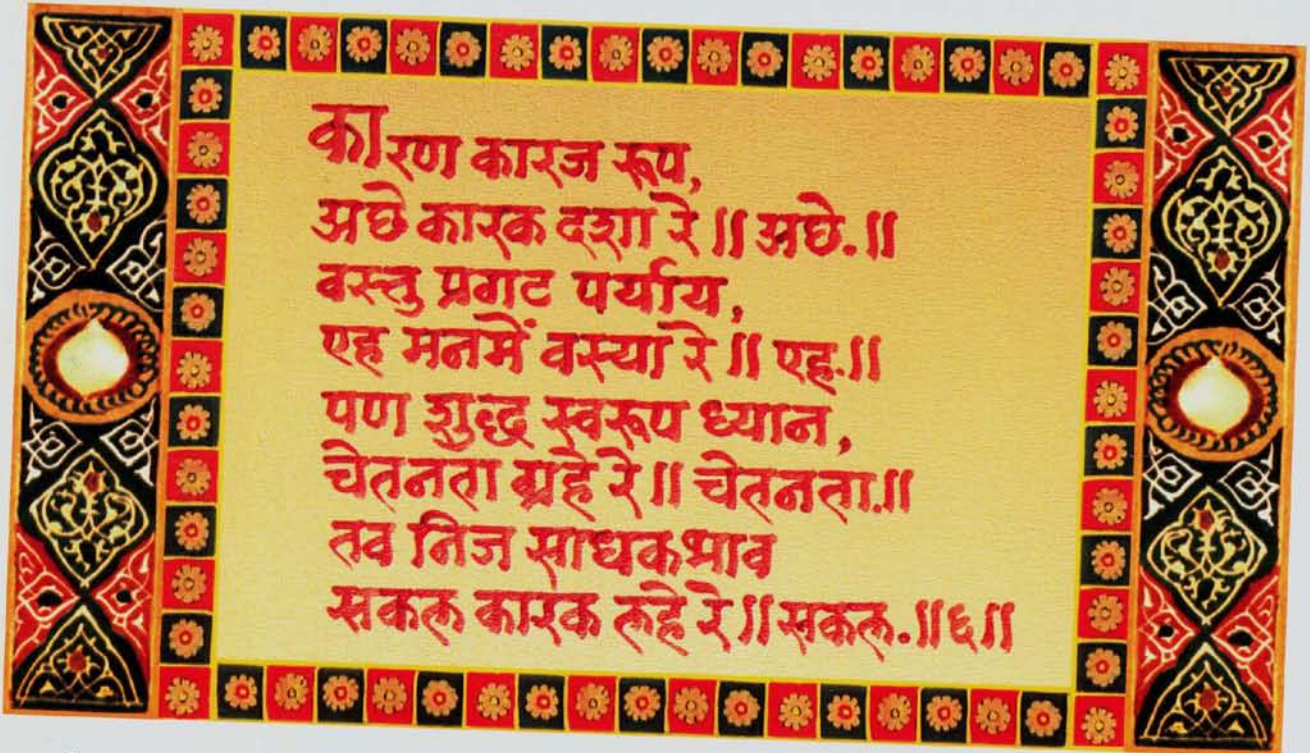 कारण कारज रूप,
अछे कारक दशा रे ॥ अछे.॥
वस्तु प्रगट पर्याय,
एह मनमें वस्या रे ॥ एह.॥
पण शुद्ध स्वरूप ध्यान,
चेतनता ग्रहे रे ॥ चेतनता.॥
तव निज साधकभाव
सकल कारक लहे रे ॥ सकल.॥६॥